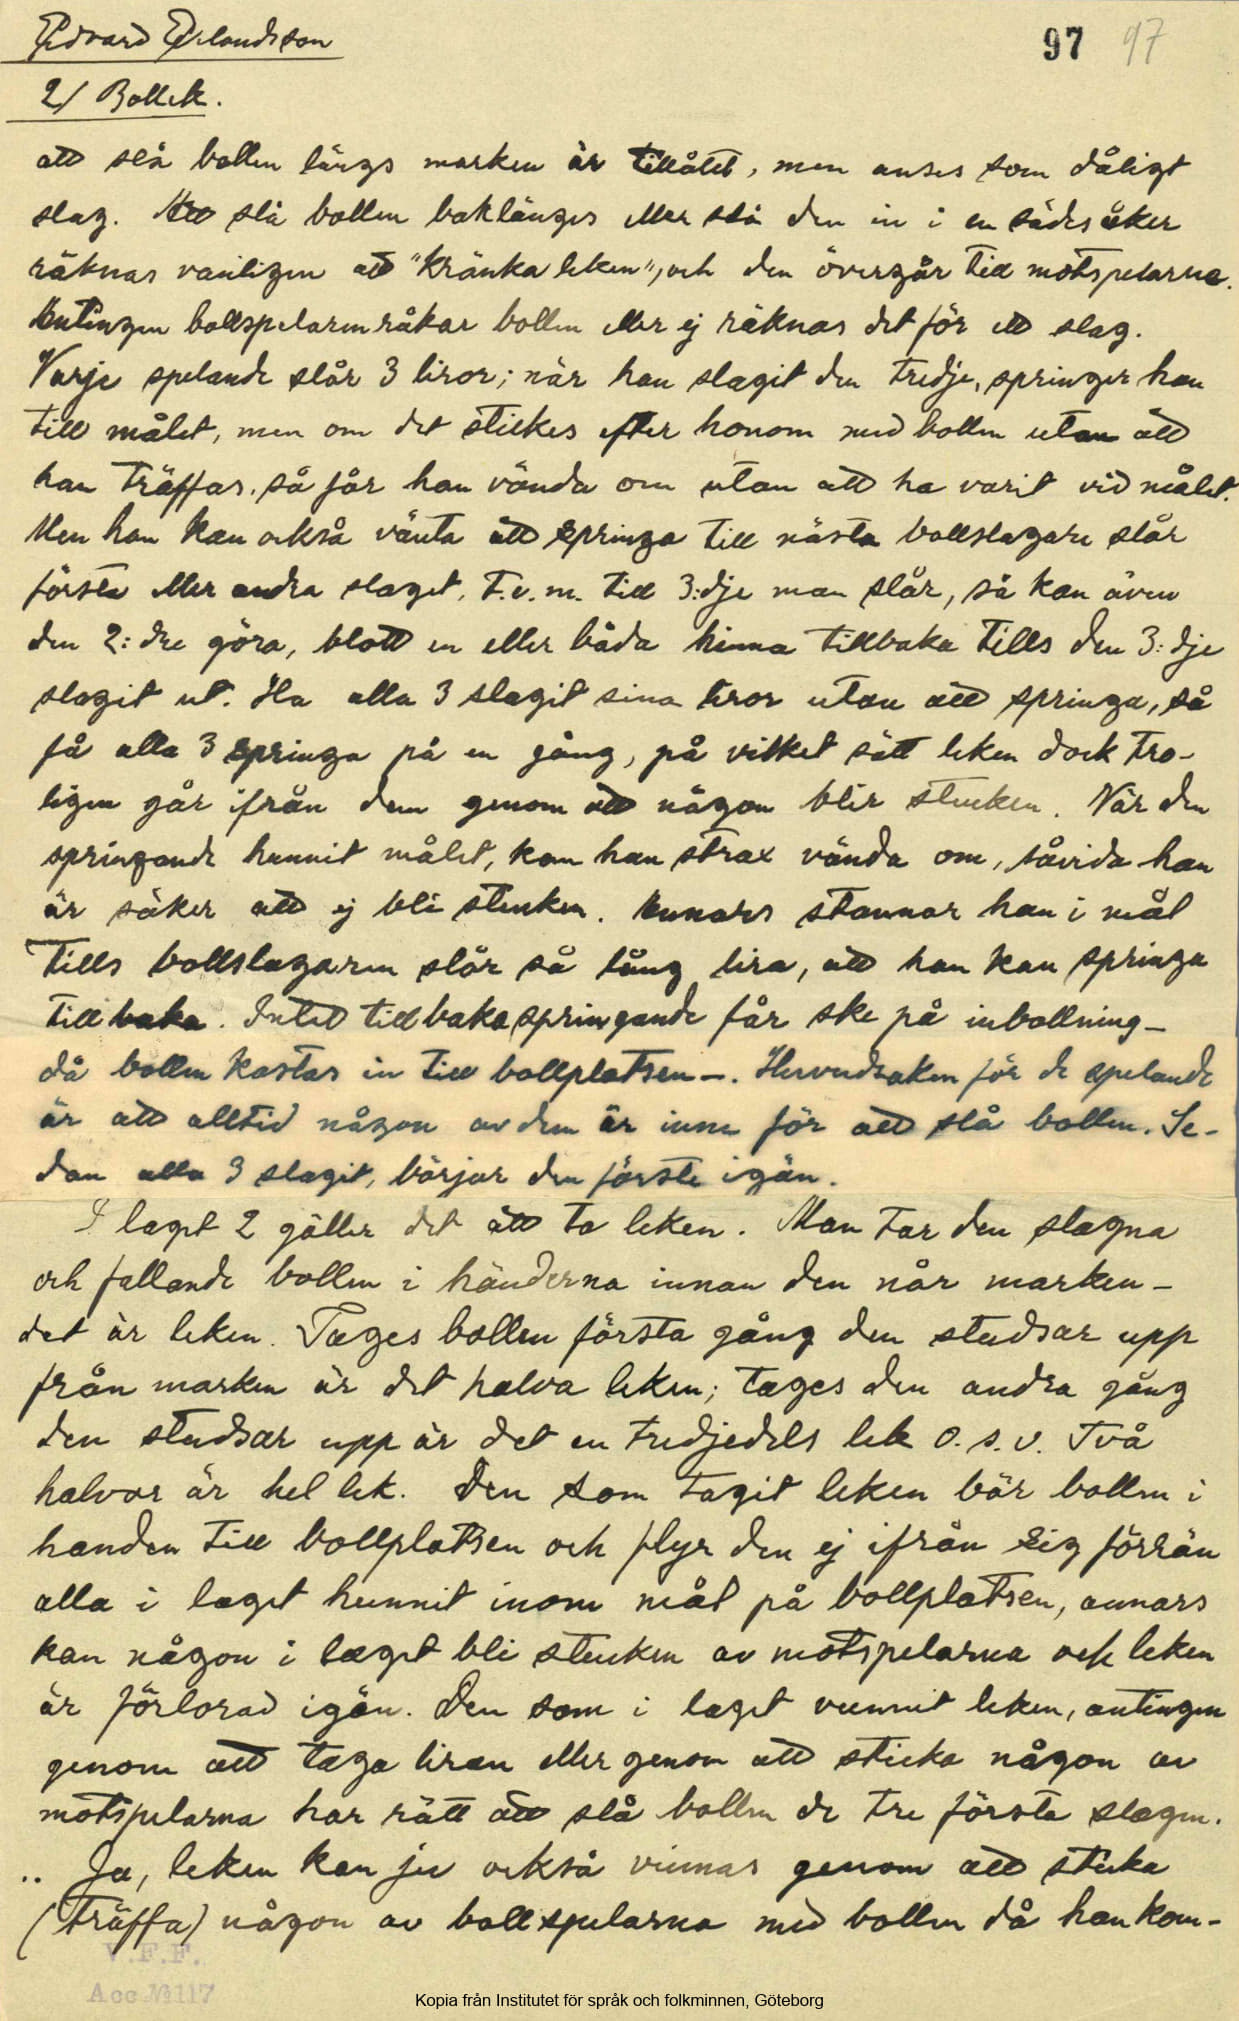 Edvard Erlandsson
97 97
2/ Bollek.
att slå bollen längs marken är tillåtet, men anses som dåligt
slag. Att slå bollen baklänges eller slå den in i en sädesåker
räknas vanligen att "kränka leken", och den övergår till motspelarna.
Antingen bollspelaren råkar bollen eller ej räknas det för ett slag.
Varje spelande slår 3 liror; när han slagit den tredje, springer han
till målet, men om det stickes efter honom med bollen utan att
han träffas, så får han vända om utan att ha varit vid målet.
Men han kan också vänta att springa till nästa bollslagare slår
första eller andra slaget, t.o.m. till 3:dje man slår, så kan även
den 2:dre göra, blott en eller båda hinna tillbaka tills den 3:dje
slagit ut. Ha alla 3 slagit sina liror utan att springa, så
få alla 3 springa på en gång, på vilket sätt leken dock tro-
ligen går ifrån dem genom att någon blir stucken. När den
springande hunnit målet, kan han strax vända om, såvida han
är säker att ej bli stucken. Annars stannar han i mål
tills bollslagaren slår så lång lira, att han kan springa
tillbaka. Intet tillbakaspringande får ske på inbollning -
då bollen kastas in till bollplatsen -. Huvudsaken för de spelande
är att alltid någon av dem är inne för att slå bollen. Se-
dan alla 3 slagit, börjar den förste igän.
I laget 2 gäller det att ta leken. Man tar den slagna
och fallande bollen i händerna innan den når marken -
det är leken. Tages bollen första gång den studsar upp
från marken är det halva leken; tages den andra gång
den studsar upp är det en tredjedels lek o.s.v. Två
halvor är hel lek. Den som tagit leken bär bollen i
handen till bollplatsen och flyr den ej ifrån sig förrän
alla i laget hunnit inom mål på bollplatsen, annars
kan någon i laget bli stucken av motspelarna och leken
är förlorad igän. Den som i laget vunnit leken, antingen
genom att taga liran eller genom att sticka någon av
motspelarna har rätt att slå bollen de tre första slagen.
.. Ja, leken kan ju också vinnas genom att sticka
(träffa) någon av bollspelarna med bollen då han kom-
V.F.F.
Acc № 117
Kopia från Institutet för språk och folkminnen, Göteborg